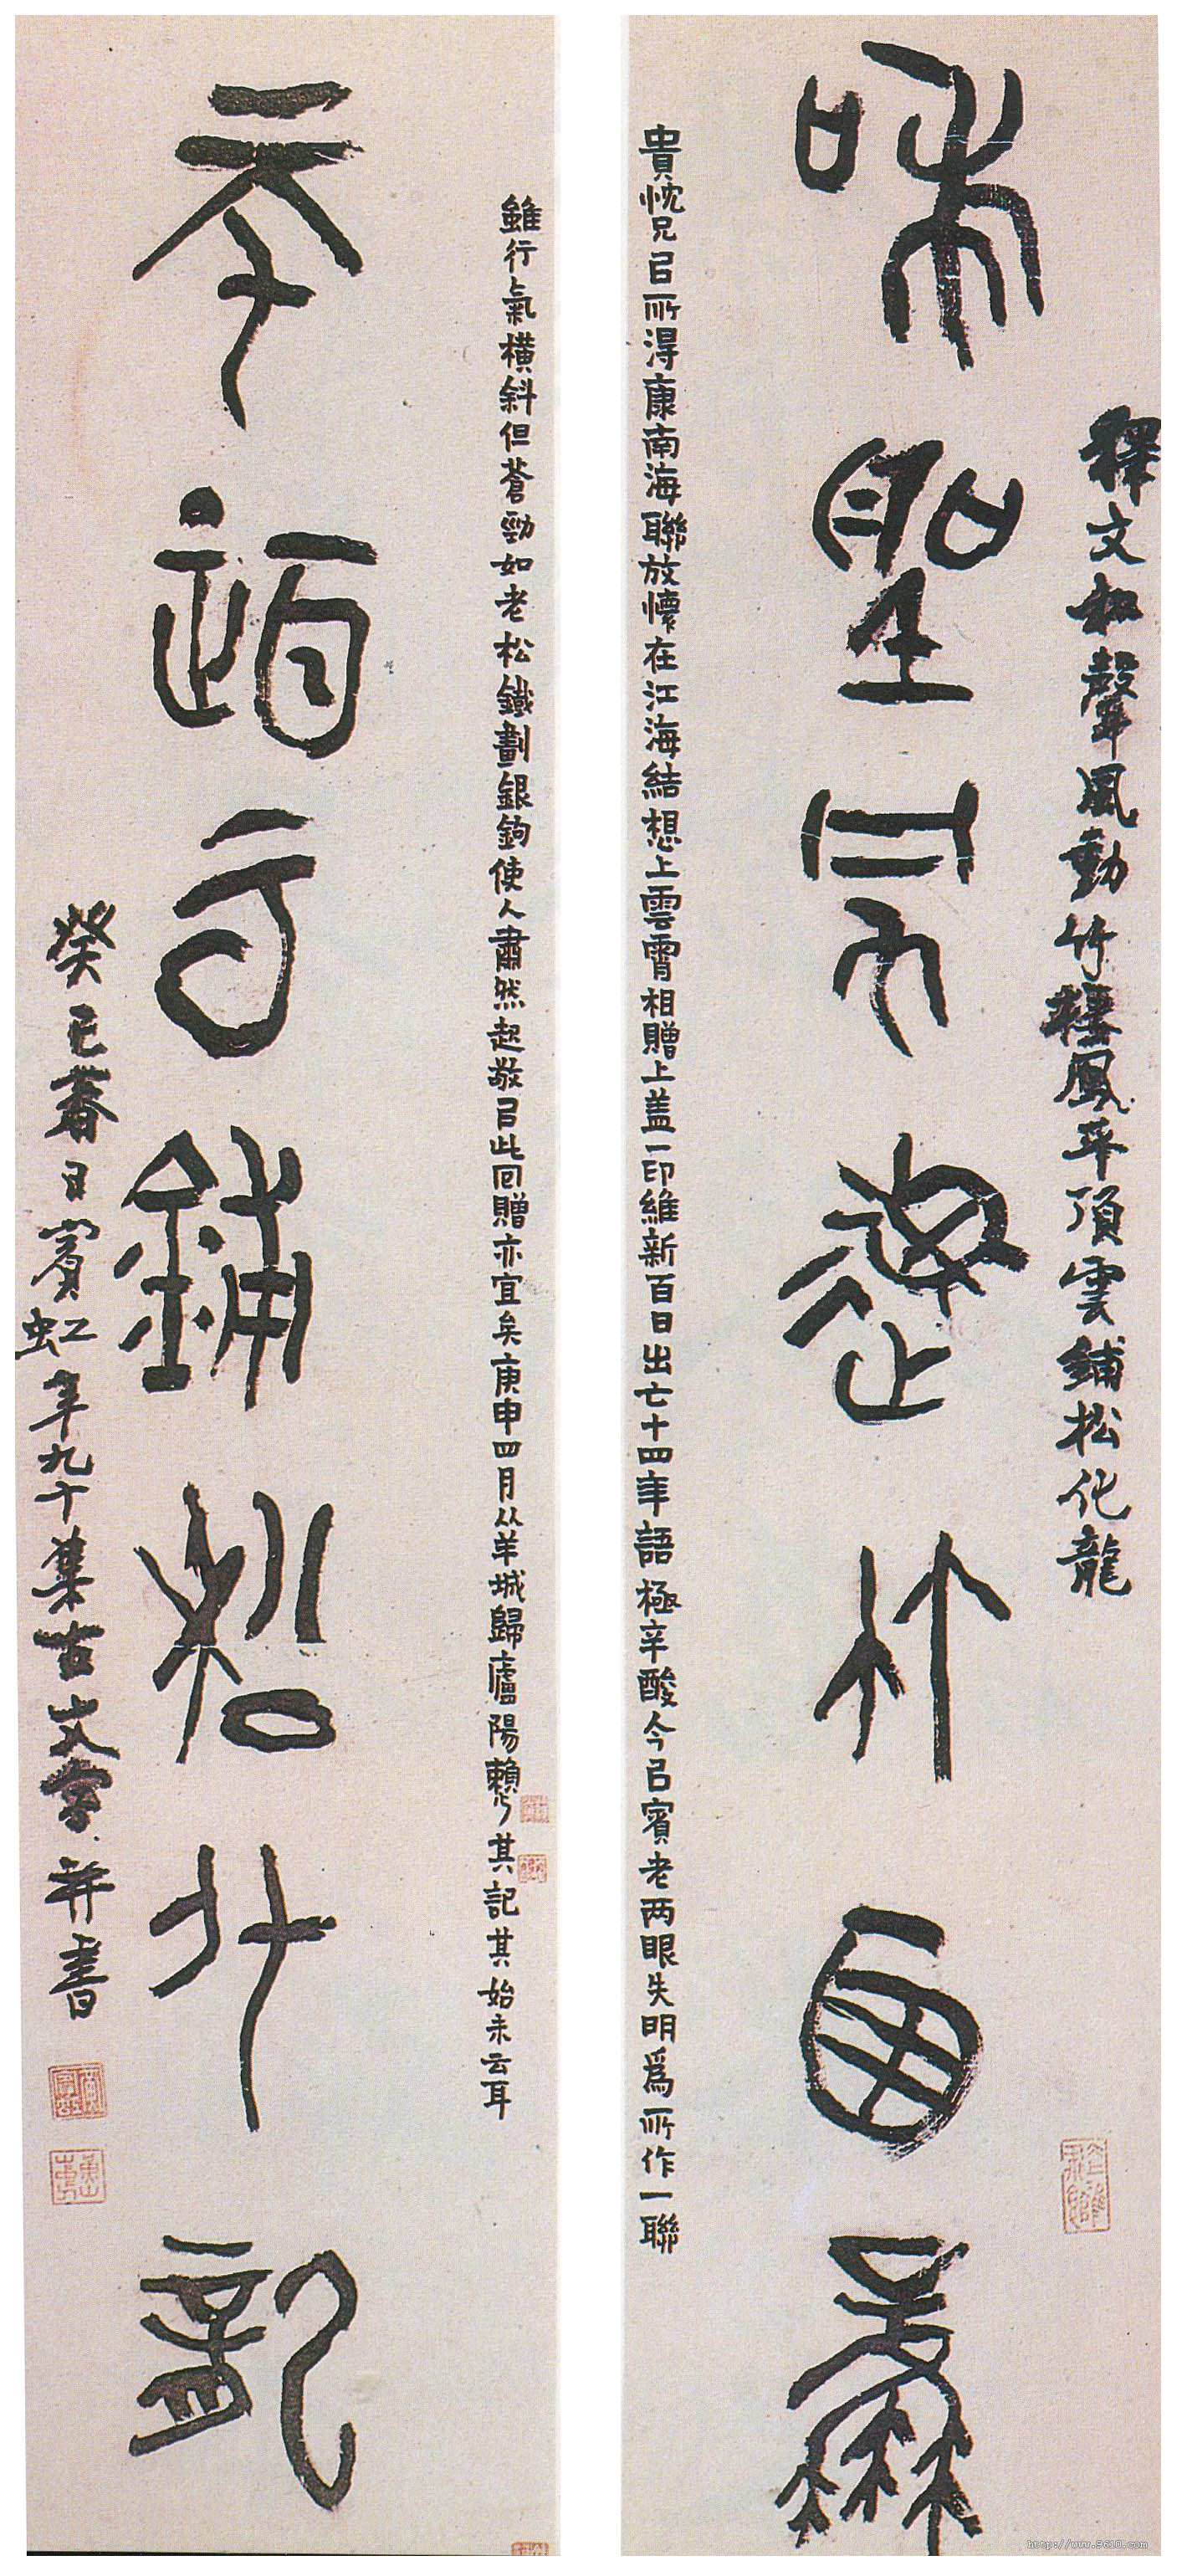 释文和聲風動竹棲鳳平頂雲鋪松化龍
和聲風動竹西鳳
貴忱兄㠯所得康南海聯放懷在江海結想上雲霄相贈上蓋一印維新百日出亡十四年語極辛酸今㠯賓老两眼失明爲所作一聯
雖行氣橫斜但蒼勁如老松鐵劃銀鉤使人肅然起敬㠯此回贈亦宜矣庚申四月从羊城歸廬陽賴少其記其始末云耳
平頂雲鋪松化龍
癸巳春日賓虹年九十集古文字并書
http://www.9610.com